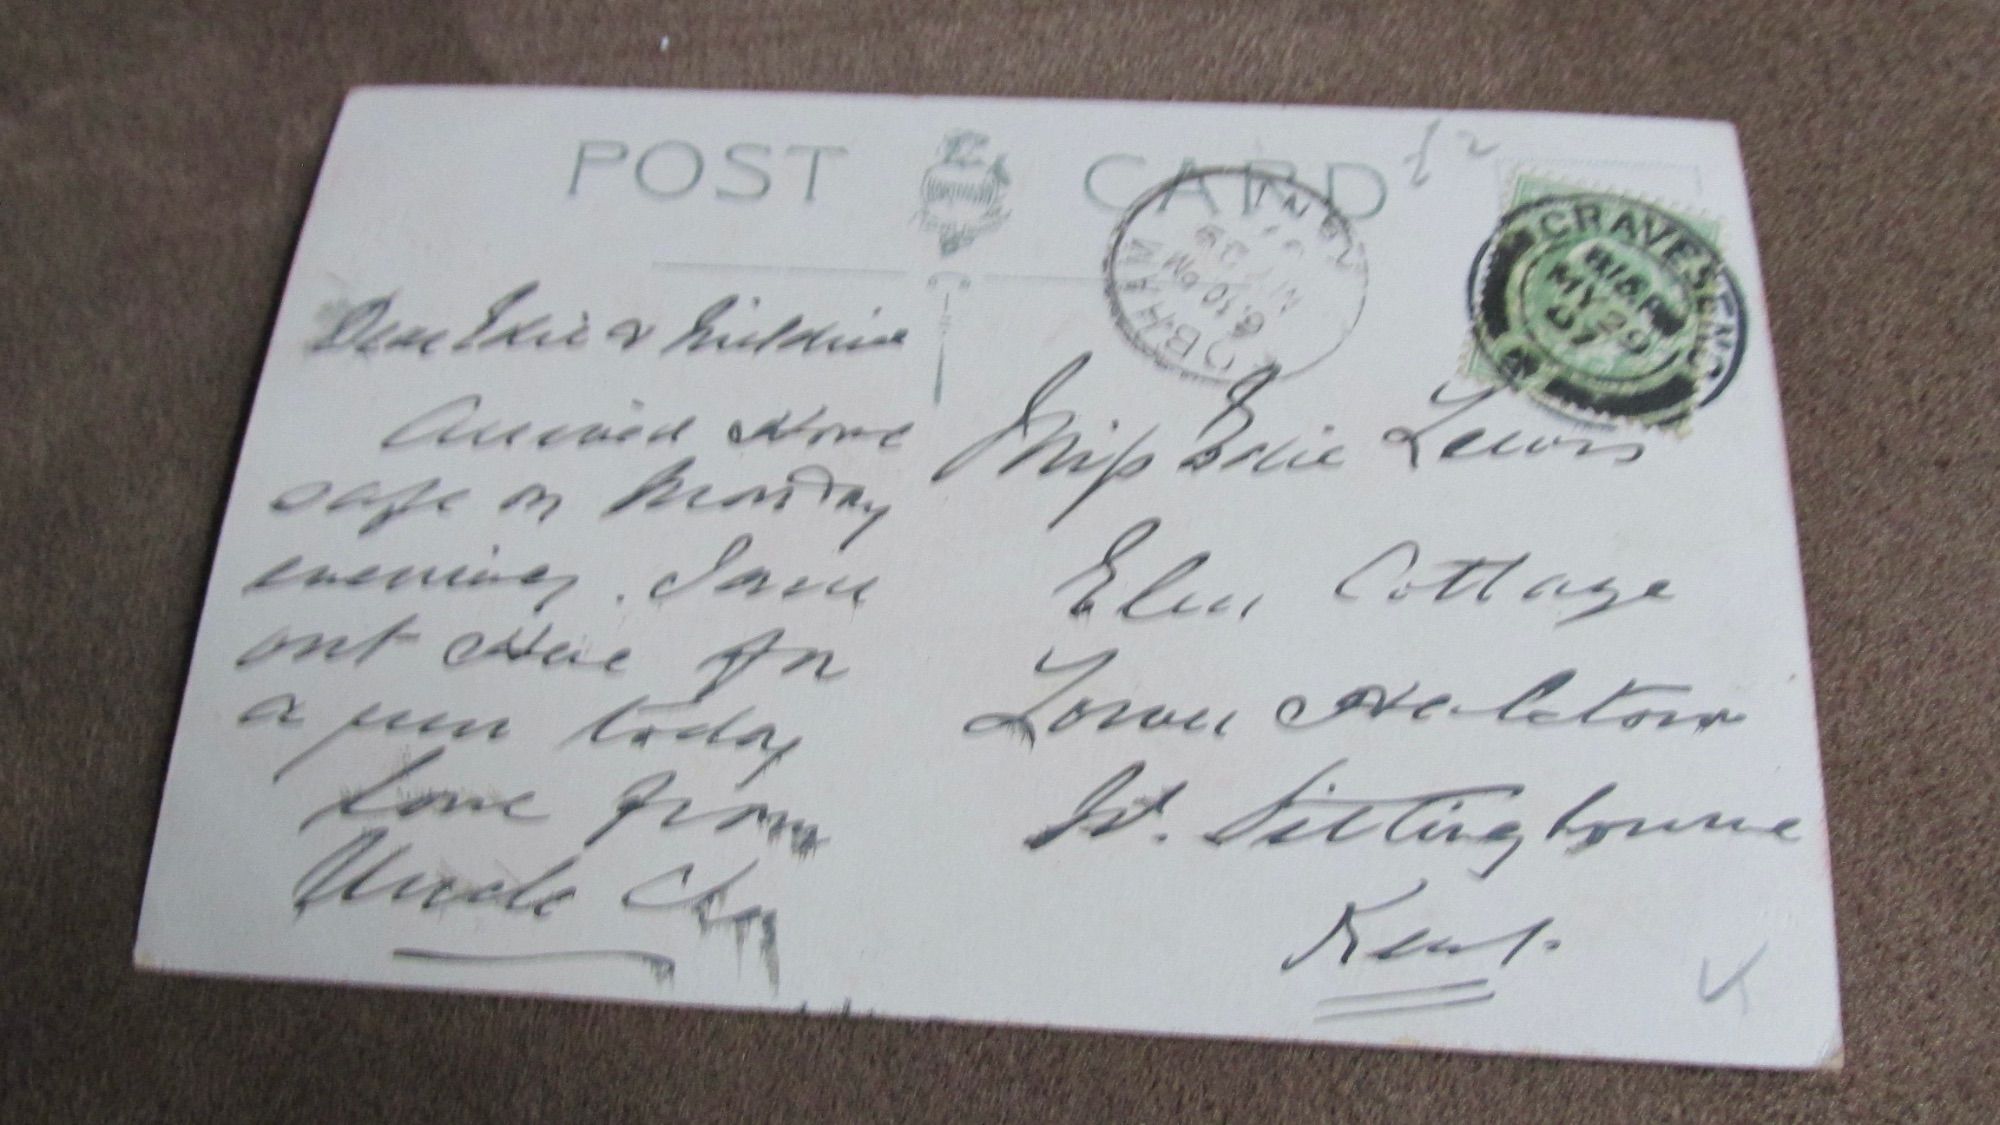 POST CARD
£2
GRAVESEND
8 15 PM
MY 29
07
COBHAM
6 10 PM
MY 29
07
Dear Edie &
Arrived Home
safe on Monday
evening. I am
out Here for
a run today
Love from
Uncle
Miss Edie Lewis
Elm Cottage
Lower Halstow
Nr. Sittingbourne
Kent.